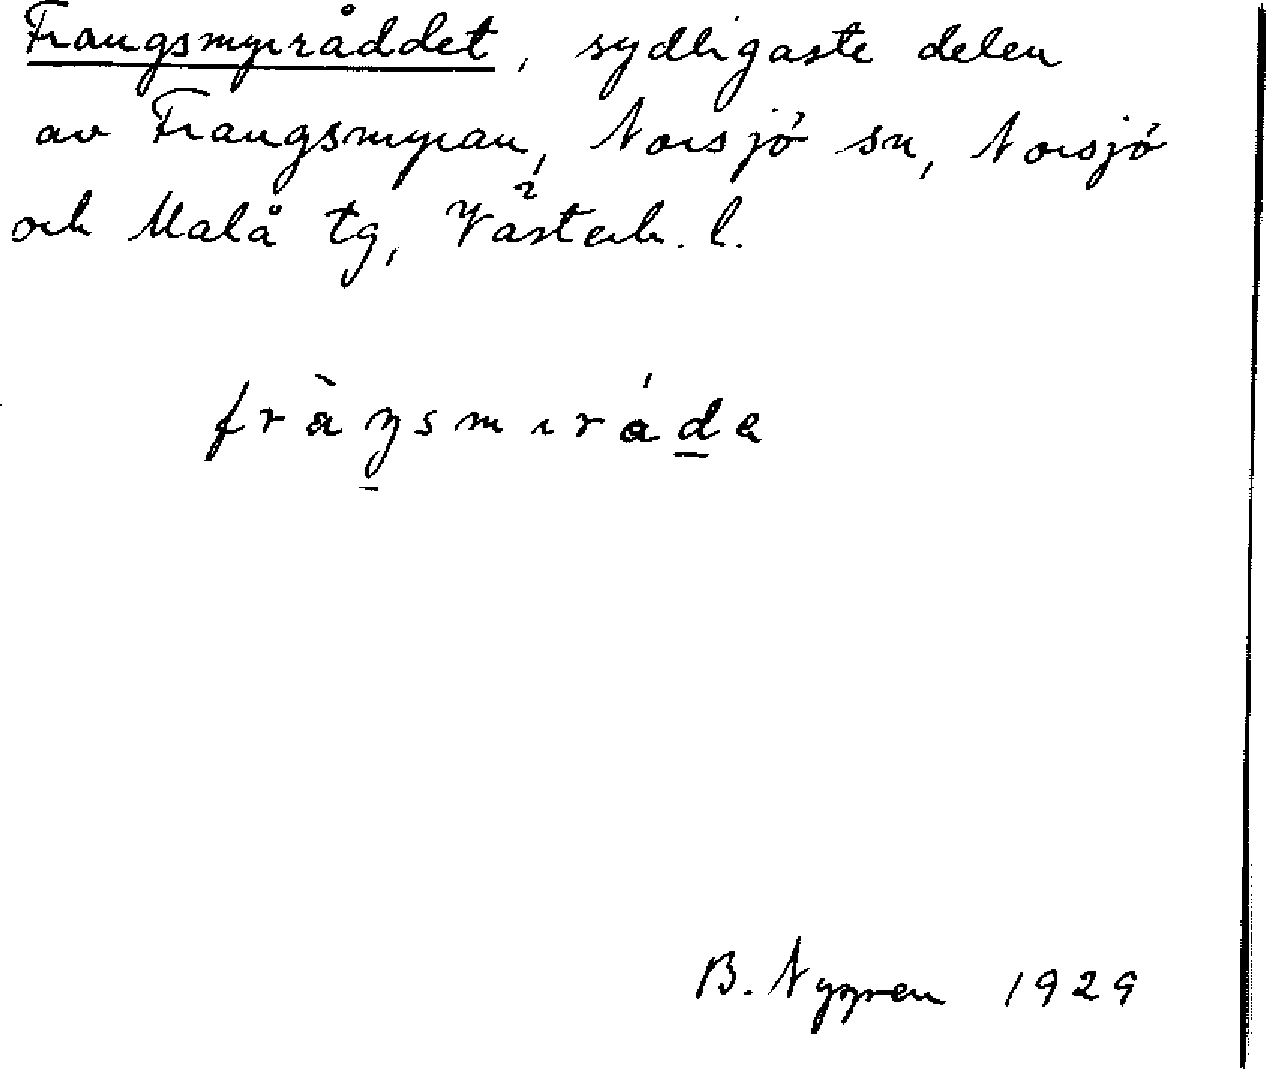 Frangsmyråddet, sydligaste delen
av Frangsmyran, Norsjö sn, Norsjö
och Malå tg, Västerb. l.
B. Nygren 1929